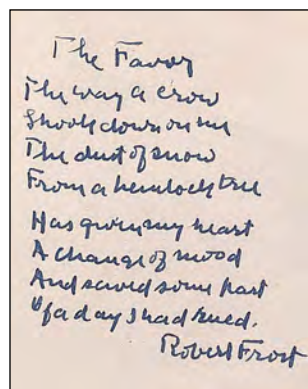 The Favor
The way a crow
Shook down on me
The dust of snow
From a hemlock tree
Has given my heart
A change of mood
And saved some part
Of a day I had rued.
Robert Frost